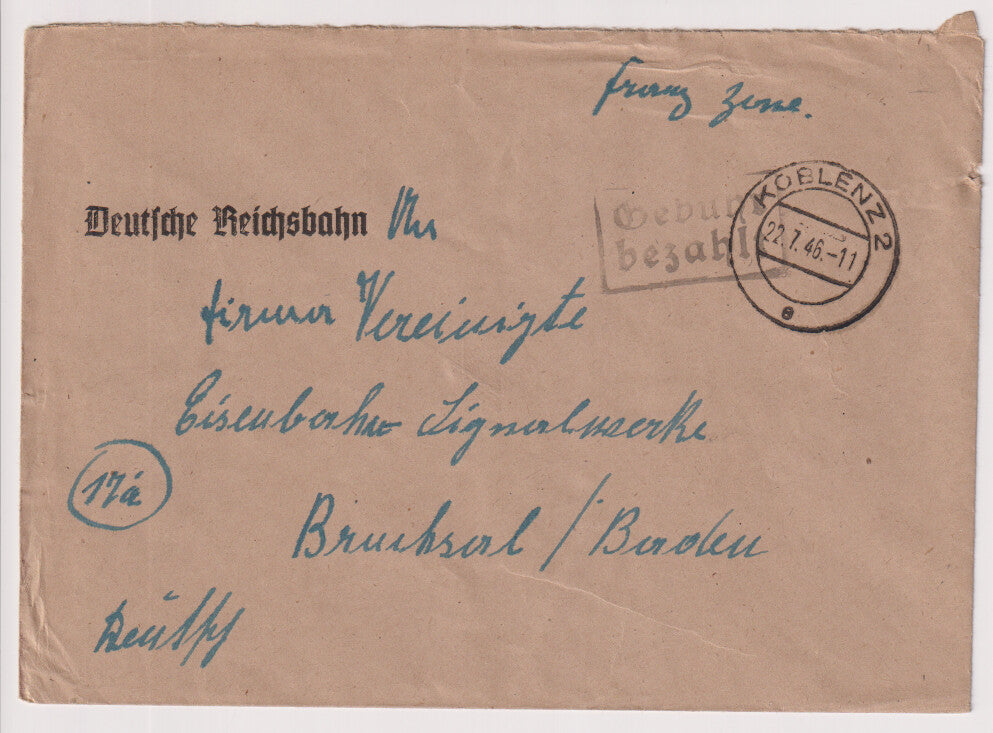 Franz Zone.
KOBLENZ 2
22.7.46.-11
e
Gebühr
bezahlt
Deutsche Reichsbahn An
Firma Vereinigte
Eisenbahn Signalwerke
17a
Bruchsal / Baden
Deutsch